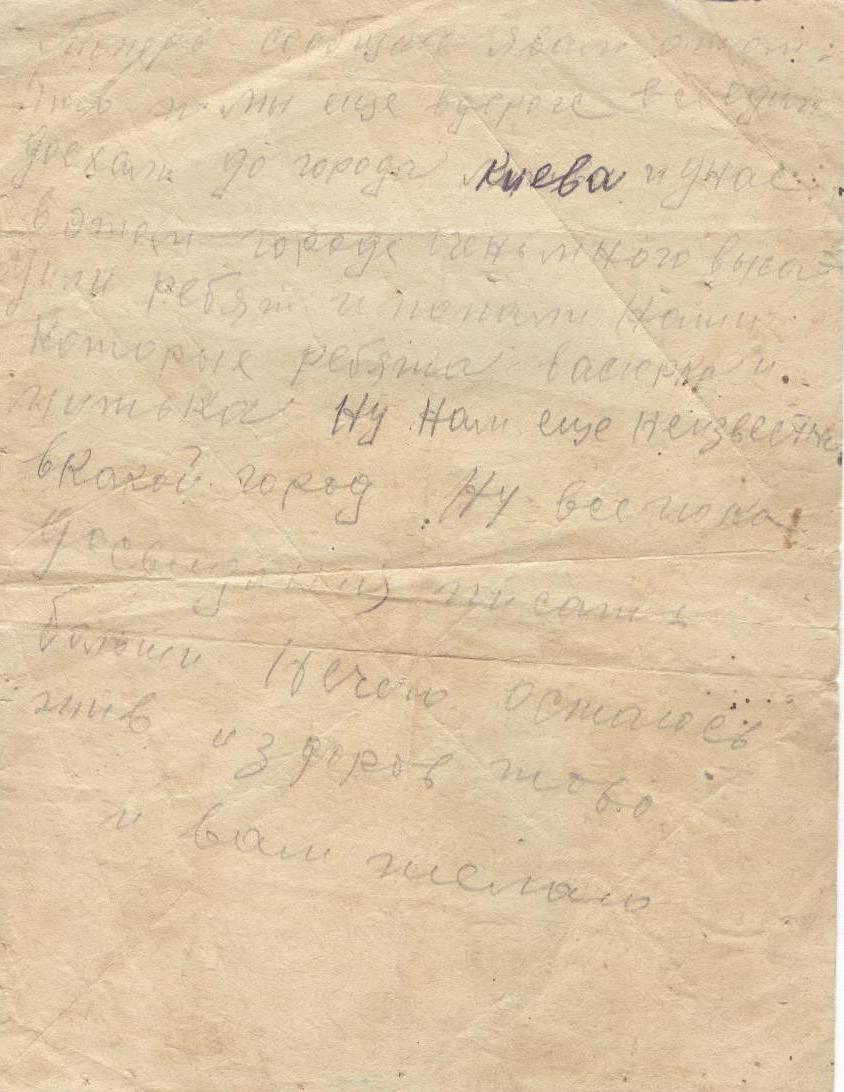 сообщаю я вам о том
что мы еще в дороге
доехали до города Киева и у нас
в этом городе очень много выса
дили ребят и попали Наши
которые ребята васюрка и
митька Ну Нам еще неизвестно
в какой город Ну все пока
досвидания писать
больши Нечего остаюсь
жив и здоров тово
и вам желаю